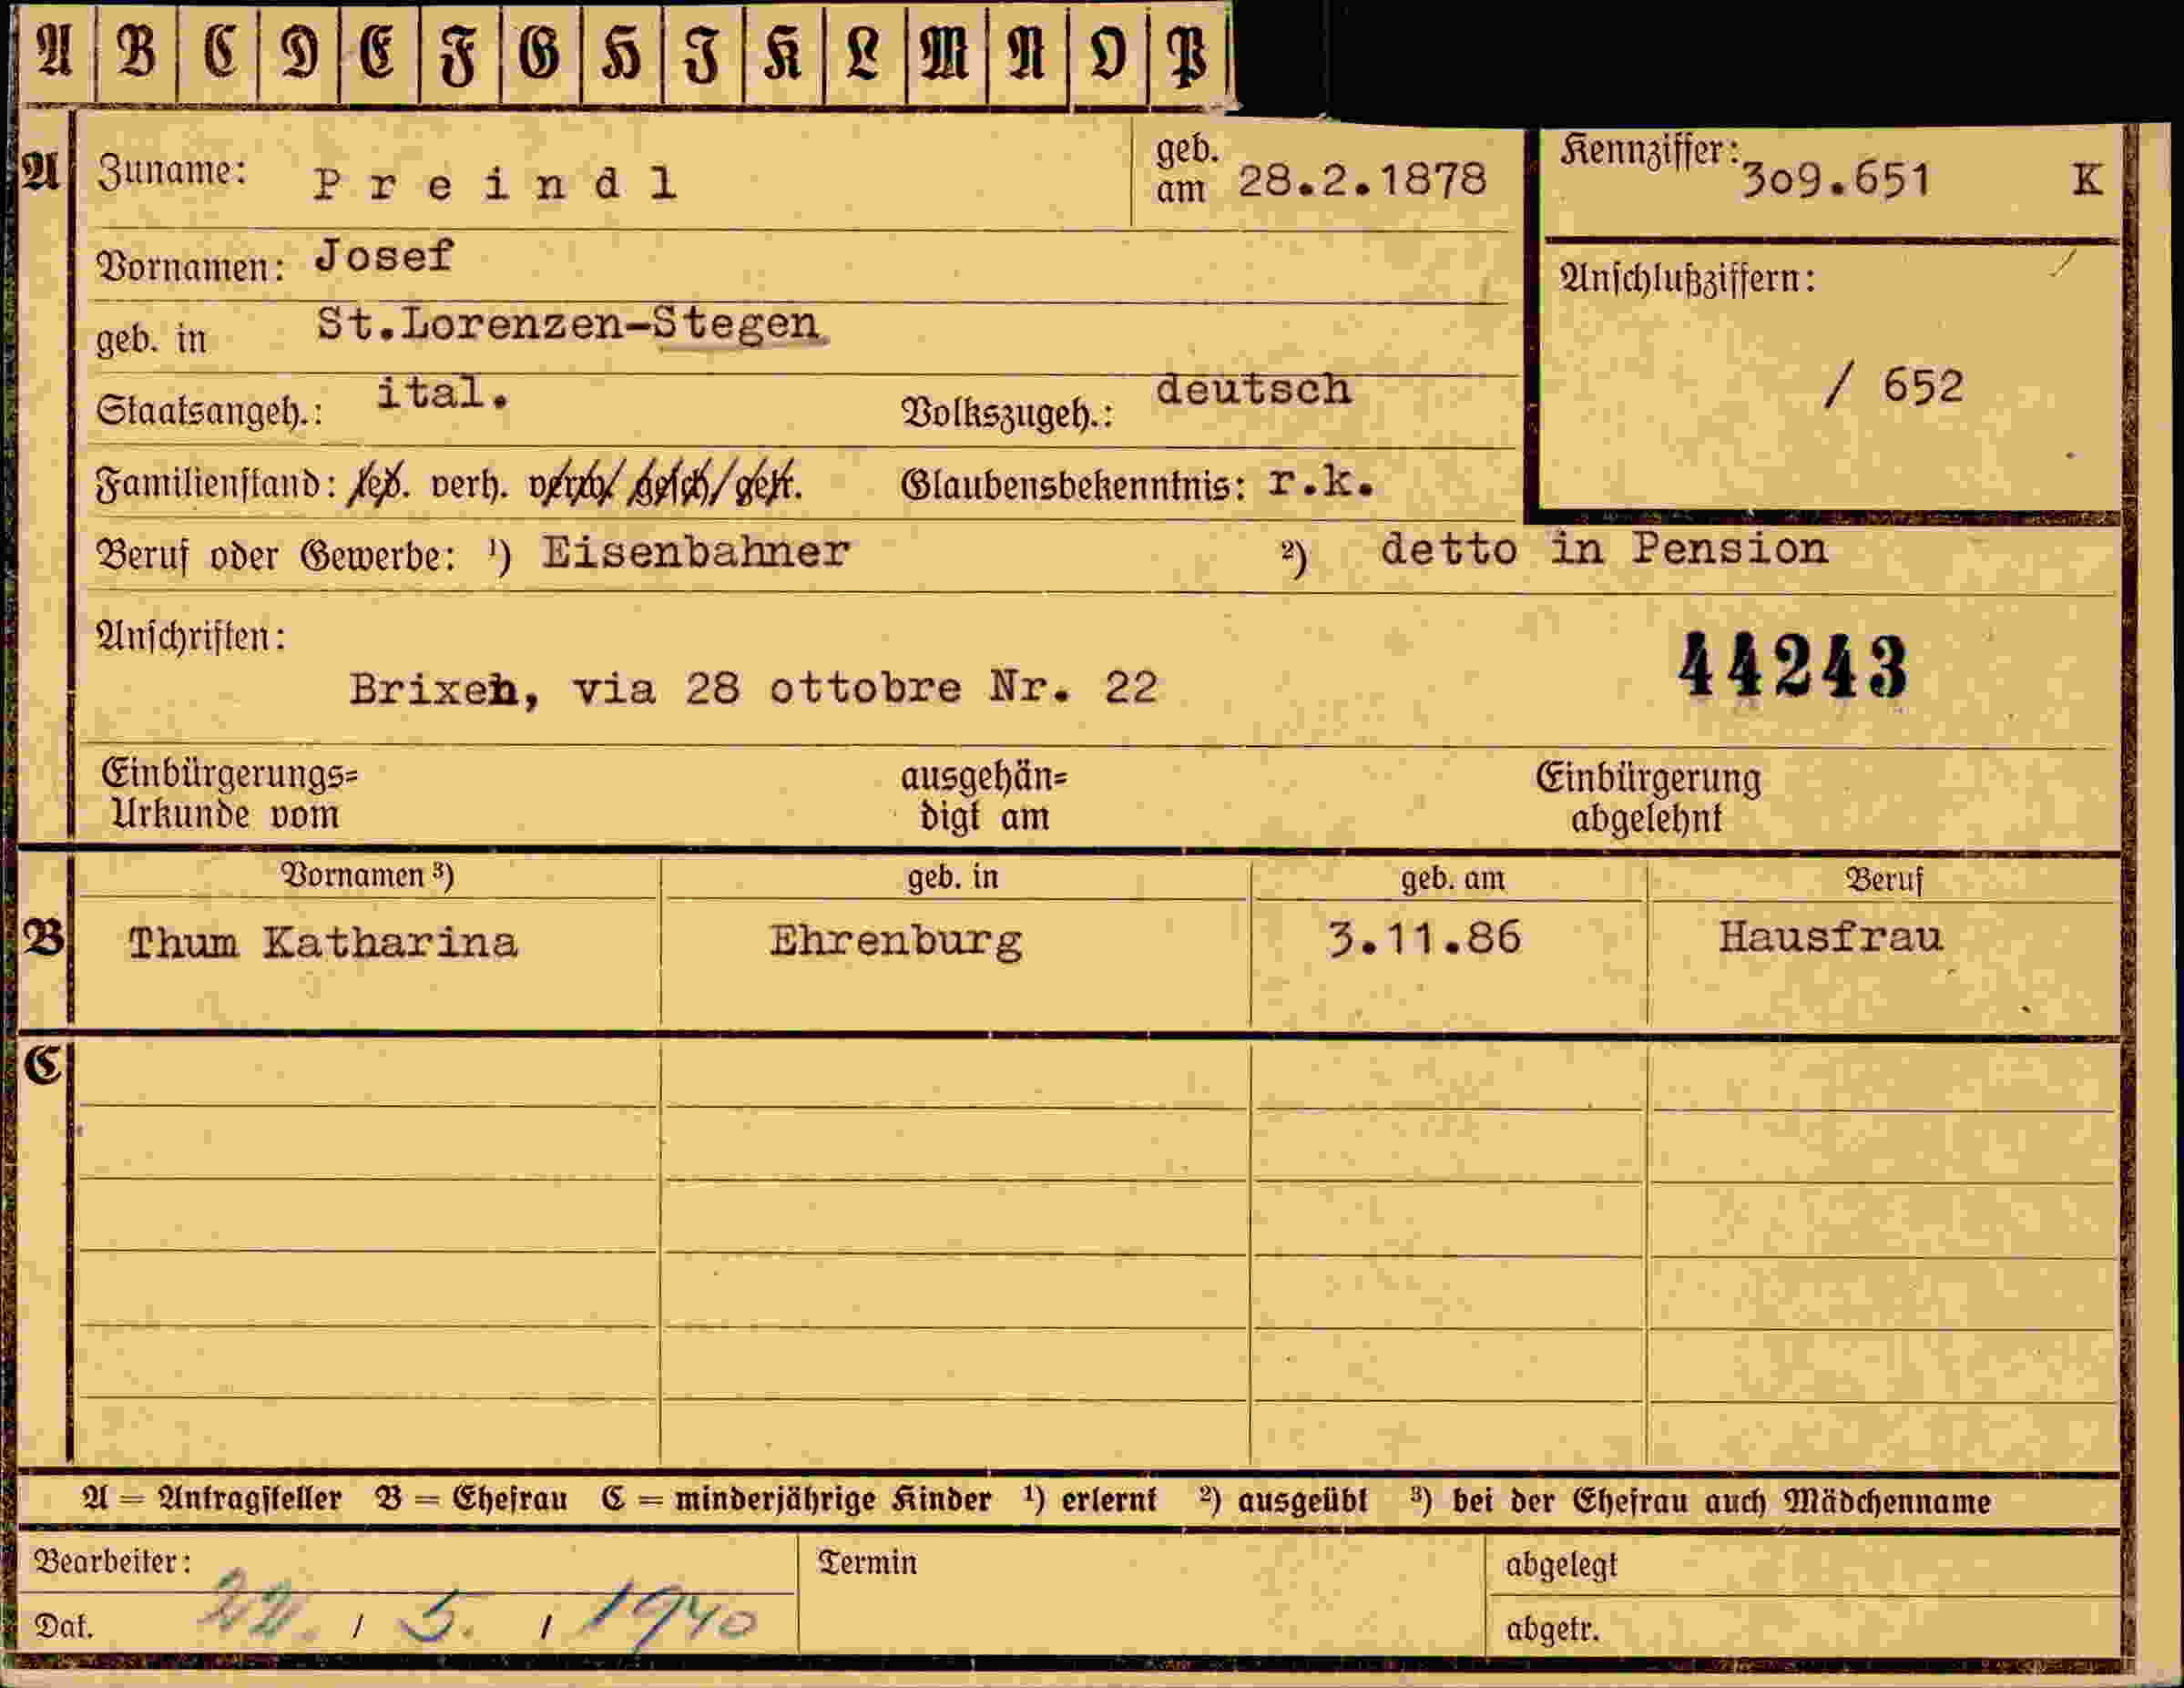 A B C D E F G H I K L M N O P
A Zuname: Preindl geb. am 28.2.1878 Kennziffer: 309.651 K
Vornamen: Josef Anschlußziffern:
geb. in St.Lorenzen-Stegen
/ 652
Staatsangeh.: ital. Volkszugeh.: deutsch
Familienstand: led. verh. verw. gesch. getr. Glaubensbekenntnis: r.k.
Beruf oder Gewerbe: ¹) Eisenbahner ²) detto in Pension
Anschriften: 44243
Brixen, via 28 ottobre Nr. 22
Einbürgerungs= ausgehän= Einbürgerung
Urkunde vom digt am abgelehnt
Vornamen ³) geb. in geb. am Beruf
B Thum Katharina Ehrenburg 3.11.86 Hausfrau
C
A = Antragsteller B = Ehefrau C = minderjährige Kinder ¹) erlernt ²) ausgeübt ³) bei der Ehefrau auch Mädchenname
Bearbeiter: Termin abgelegt
Dat. 22. / 5. / 1940 abgetr.